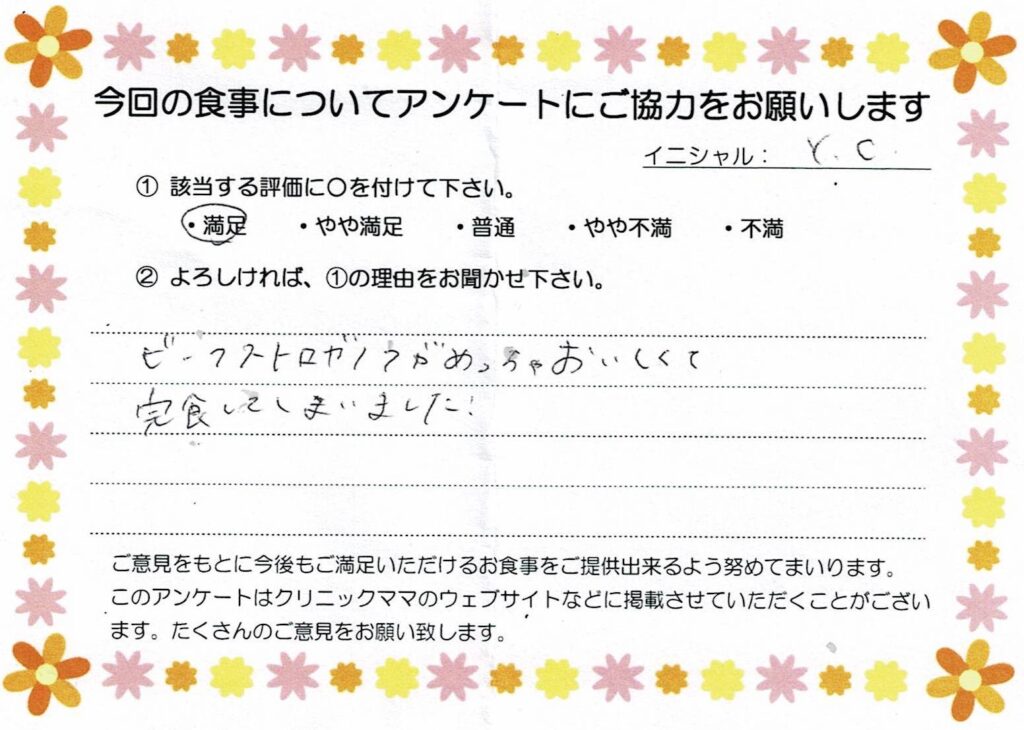 今回の食事についてアンケートにご協力をお願いします
イニシャル： Y.C.
① 該当する評価に○を付けて下さい。
・満足 ・やや満足 ・普通 ・やや不満 ・不満
② よろしければ、①の理由をお聞かせ下さい。
ビーフストロガノフがめっちゃおいしくて
完食してしまいました！
ご意見をもとに今後もご満足いただけるお食事をご提供出来るよう努めてまいります。
このアンケートはクリニックママのウェブサイトなどに掲載させていただくことがござい
ます。たくさんのご意見をお願い致します。